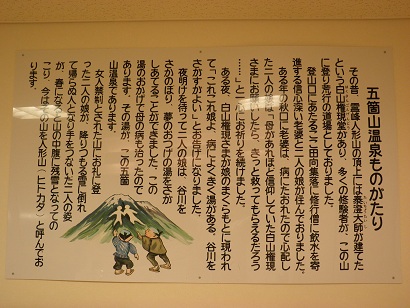 五箇山温泉ものがたり
その昔、霊峰人形山の頂上には泰澄大師が建てた
という白山権現堂があり、多くの修験者が、この山
に登り荒行の道場としておりました。
登山口にあたるここ田向集落に修行僧に飲水を寄
進する信心深い老婆と二人の娘が住んでおりました。
ある年の秋口に老婆は、病にたおれたので心配し
た二人の娘は「母があれほど信仰していた白山権現
さまにお願いしたら、きっと救ってもらえるだろう
……」と一心にお祈りを続けました。
ある夜、白山権現さまが娘のまくらもとに現われ
て「これこれ娘よ、病によくきく湯がある、谷川を
さかすがよい」とお告げになりました。
夜明けを待って二人の娘は、谷川を
さかのぼり、夢のおつげの湯をさが
しあてることができました。この
湯のおかげで母の病も治ったので
あります。その湯が、この五箇
山温泉であります。
女人禁制とされた山にお礼に登
った二人の娘が、降りつもる雪に倒れ
て帰らぬ人となり手をつないだ二人の姿
が、春になると山の中腹に残雪となっての
こり、今はこの山を人形山（ヒトガタ）と呼んでお
ります。